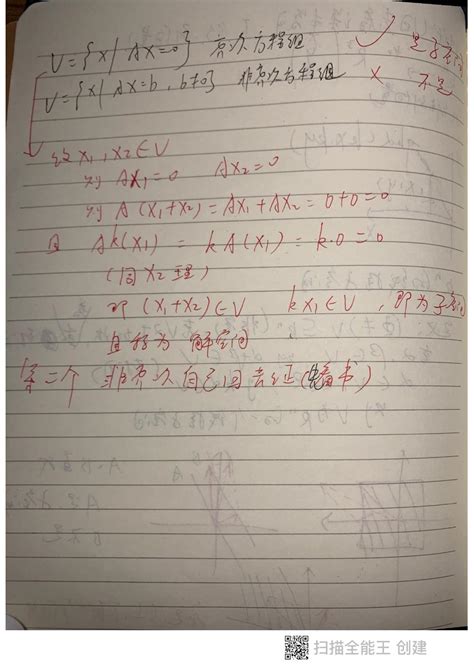 V={x| Ax=0} 齐次方程组 ✓ 是子空间
V={x| Ax=b, b≠0} 非齐次方程组 × 不是
设 x₁, x₂∈V
则 Ax₁=0 Ax₂=0
则 A(x₁+x₂)=Ax₁+Ax₂=0+0=0
且 Ak(x₁)=kA(x₁)=k·0=0
(同x₂理)
即 (x₁+x₂)∈V kx₁∈V, 即为子空间
且称为 解空间
第二个 非齐次自己回去证(看书)
扫描全能王 创建